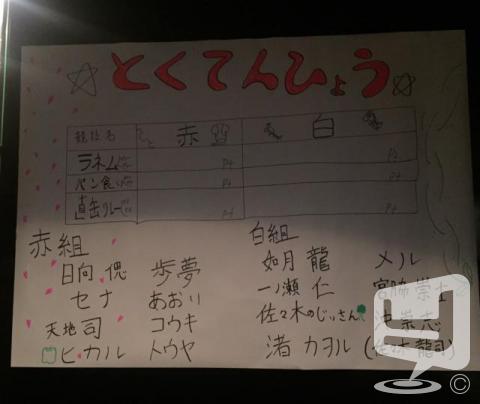 とくてんひょう
競技名 赤 白
ラネム pt pt
パン食い pt pt
pt pt
赤組
日向 偲 歩夢
セナ あおい
天地 司 コウキ
ヒカル トウヤ
白組
如月 龍 メル
一ノ瀬 仁 宮脇
佐々木のじぃさん
渚 カヲル
©